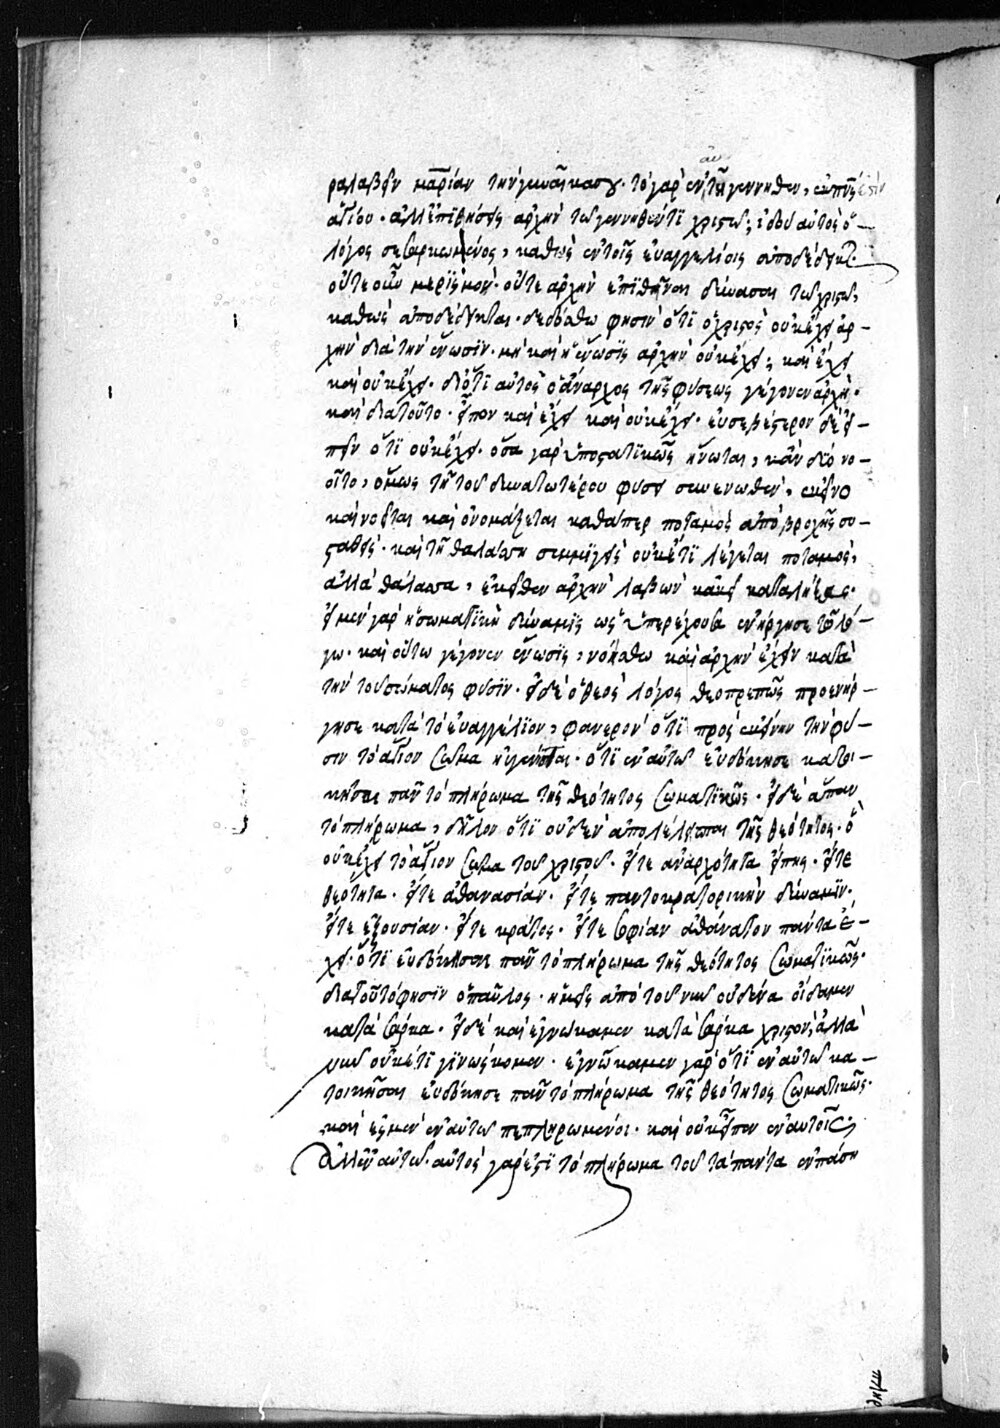 ραλαβεῖν μαρίαν τὴν γυναῖκα σου· τὸ γὰρ ἐν αὐτῇ γεννηθὲν, ἐκ πνς ἐστὶν
ἁγίου· ἀλλ' ἐπιθήσεις ἀρχὴν τῶ γεννηθέντι χριστῶ; ἰδοὺ αὐτὸς ὁ
λόγος σεσαρκωμένος, καθὼς ἐν τοῖς εὐαγγελίοις ἀποδέδεικται·
οὔτε οὖν μερισμὸν· οὔτε ἀρχὴν ἐπιθεῖναι δύνασαι τῶ χριστῶ,
καθὼς ἀποδέδεικται· δεδόσθω φησὶν ὅτι ὁ χριστὸς οὐκ ἔχει ἀρ-
χὴν διὰ τὴν ἕνωσιν· μὴ καὶ ἡ ἕνωσις ἀρχὴν οὐκ ἔχει; καὶ ἔχει
καὶ οὐκ ἔχει· διότι αὐτὸς ὁ ἄναρχος τῆς φύσεως γέγονεν ἀρχὴ·
καὶ διὰ τοῦτο· εἶπον καὶ ἔχει καὶ οὐκ ἔχει· εὐσεβέστερον δὲ εἰ-
πεῖν ὅτι οὐκ ἔχει· ὅσα γὰρ ὑποστατικῶς ἥνωται, κἂν δύο νο-
οῖτο, ὅμως τῇ τοῦ δυνατωτέρου φύσει συνενωθὲν, ἐκεῖνο
καὶ νοεῖται καὶ ὀνομάζεται καθάπερ ποταμὸς ἀπὸ βροχῆς συ-
σταθεὶς· καὶ τῇ θαλάσση συμμιγεὶς οὐκέτι λέγεται ποταμὸς,
ἀλλὰ θάλασσα, ἐκεῖθεν ἀρχὴν λαβὼν κἀκεῖ καταλήξας·
εἰ μὲν γὰρ ἡ σωματικὴ δύναμις ὡς ὑπερέχουσα ἐνήργησε τῶ λό-
γω· καὶ οὕτω γέγονεν ἕνωσις, νοείσθω καὶ ἀρχὴν ἔχειν κατὰ
τὴν τοῦ σώματος φύσιν· εἰ δὲ ὁ θεὸς λόγος θεοπρεπῶς προενήρ-
γησε κατὰ τὸ εὐαγγέλιον, φανερὸν ὅτι πρὸς ἐκείνην τὴν φύ-
σιν τὸ ἅγιον σῶμα ἡγένισται· ὅτι ἐν αὐτῶ εὐδόκησε κατοι-
κῆσαι πᾶν τὸ πλήρωμα τῆς θεότητος σωματικῶς· εἰ δὲ ἅπαν
τὸ πλήρωμα, δῆλον ὅτι οὐδὲν ἀπολέλειπται τῆς θεότητος· ὃ
οὐκ ἔχει τὸ ἅγιον σῶμα τοῦ χριστοῦ· εἴτε ἀναρχότητα εἴπης· εἴτε
θεότητα· εἴτε ἀθανασίαν· εἴτε παντοκρατορικὴν δύναμιν·
εἴτε ἐξουσίαν· εἴτε κράτος· εἴτε σοφίαν ἀθάνατον πάντα ἔ-
χει· ὅτι εὐδόκησαι πᾶν τὸ πλήρωμα τῆς θεότητος σωματικῶς·
διὰ τοῦτό φησιν ὁ παῦλος· ἡμεῖς ἀπὸ τοῦ νῦν οὐδένα οἴδαμεν
κατὰ σάρκα· εἰ δὲ καὶ ἐγνώκαμεν κατὰ σάρκα χριστὸν, ἀλλὰ
νῦν οὐκέτι γινώσκομεν· ἐγνώκαμεν γὰρ ὅτι ἐν αὐτῶ κα-
τοικῆσαι εὐδόκησε πᾶν τὸ πλήρωμα τῆς θεότητος σωματικῶς·
καὶ ἐσμὲν ἐν αὐτῶ πεπληρωμένοι· καὶ οὐκ εἶπεν ἐν αὐτοῖς,
ἀλλ' ἐν αὐτῶ· αὐτὸς γάρ ἐστι τὸ πλήρωμα τοῦ τὰ πάντα ἐν πᾶσι